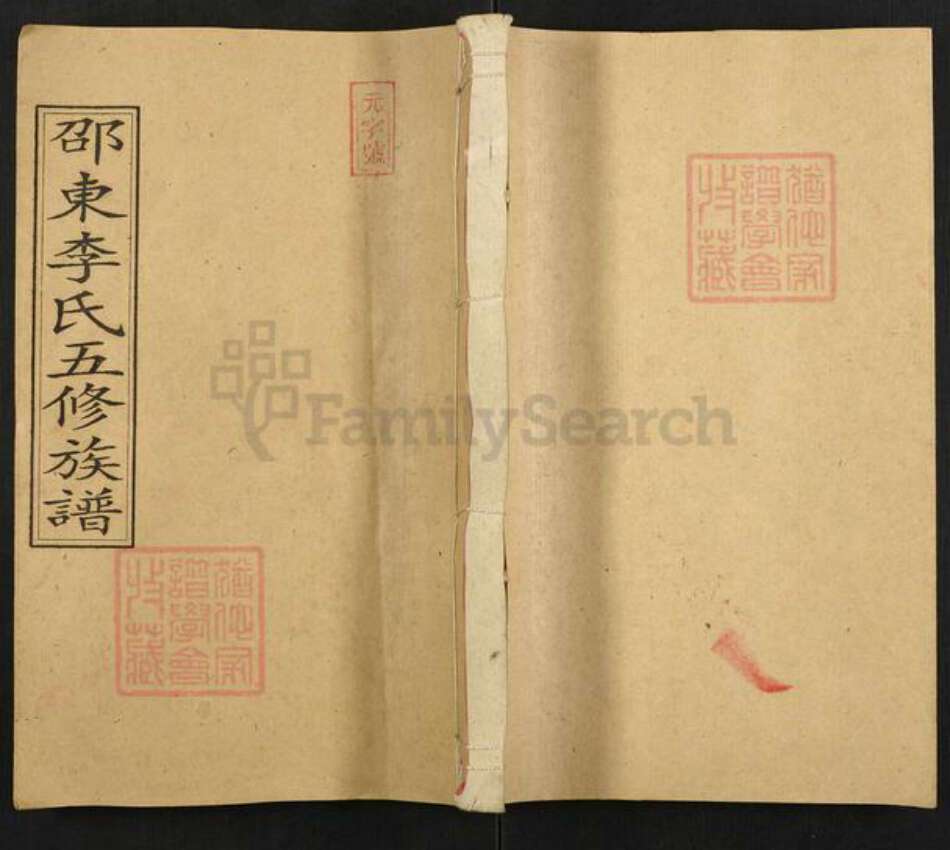 邵東李氏五修族譜
元字號
猶他家
譜學會
收藏
猶他家
譜學會
收藏
FamilySearch